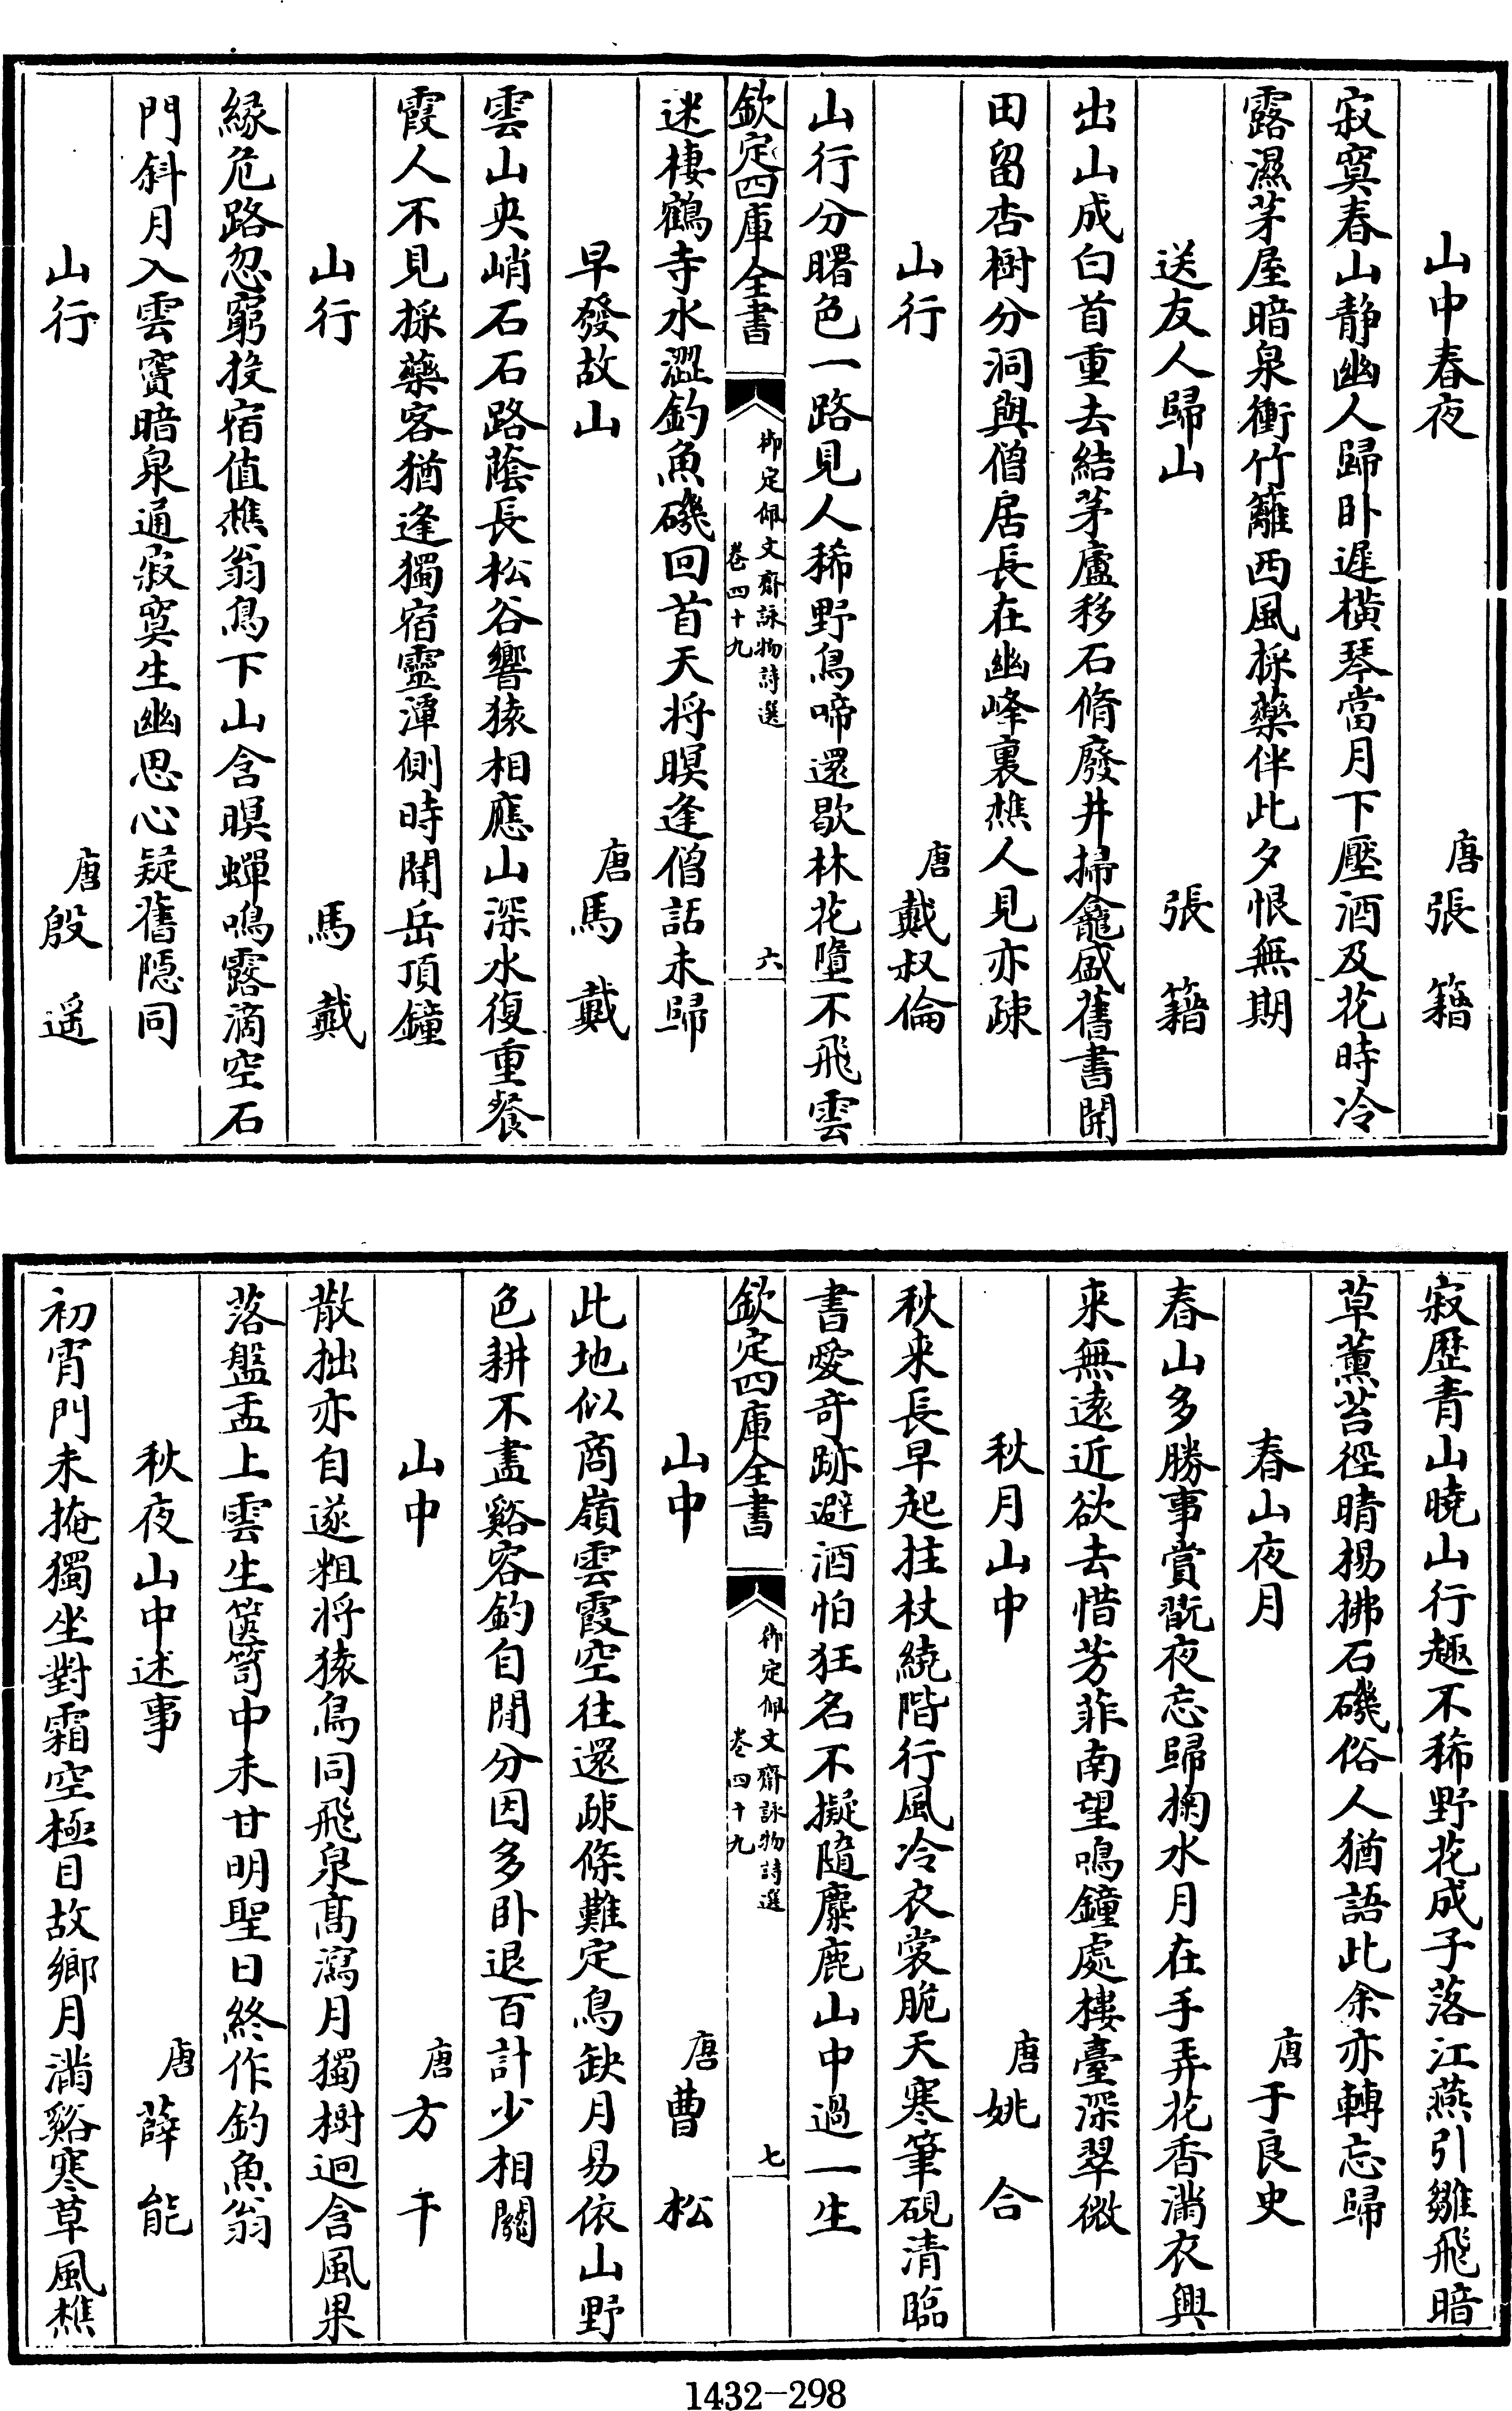 山中春夜 唐張籍
寂寞春山静幽人歸卧遲横琴當月下壓酒及花時冷
露濕茅屋暗泉衝竹籬西風採藥伴此夕恨無期
送友人歸山 張籍
出山成白首重去結茅廬移石脩廢井掃龕盛舊書開
田留杏樹分洞與僧居長在幽峰裏樵人見亦疎
山行 唐戴叔倫
山行分曙色一路見人稀野鳥啼還歇林花墮不飛雲
欽定四庫全書 御定佩文齋詠物詩選 卷四十九 六
迷棲鶴寺水澀釣魚磯回首天將暝逢僧話未歸
早發故山 唐馬戴
雲山夾峭石石路蔭長松谷響猿相應山深水復重餐
霞人不見採藥客猶逢獨宿靈潭側時聞岳頂鐘
山行 馬戴
緣危路忽窮投宿值樵翁鳥下山含暝蟬鳴露滴空石
門斜月入雲竇暗泉通寂寞生幽思心疑舊隱同
山行 唐殷遥
寂歴青山曉山行趣不稀野花成子落江燕引雛飛暗
草薰苔徑晴楊拂石磯俗人猶語此余亦轉忘歸
春山夜月 唐于良史
春山多勝事賞翫夜忘歸掬水月在手弄花香滿衣興
來無遠近欲去惜芳菲南望鳴鐘處樓臺深翠微
秋月山中 唐姚合
秋來長早起拄杖繞階行風冷衣裳脆天寒筆硯清臨
書愛奇跡避酒怕狂名不擬隨麋鹿山中過一生
欽定四庫全書 御定佩文齋詠物詩選 卷四十九 七
山中 唐曹松
此地似商嶺雲霞空往還疎條難定鳥缺月易依山野
色耕不盡谿容釣自閒分因多卧退百計少相關
山中 唐方干
散拙亦自遂粗將猿鳥同飛泉高瀉月獨樹迥含風果
落盤盂上雲生篋笥中未甘明聖日終作釣魚翁
秋夜山中述事 唐薛能
初宵門未掩獨坐對霜空極目故鄉月滿谿寒草風樵
1432-298